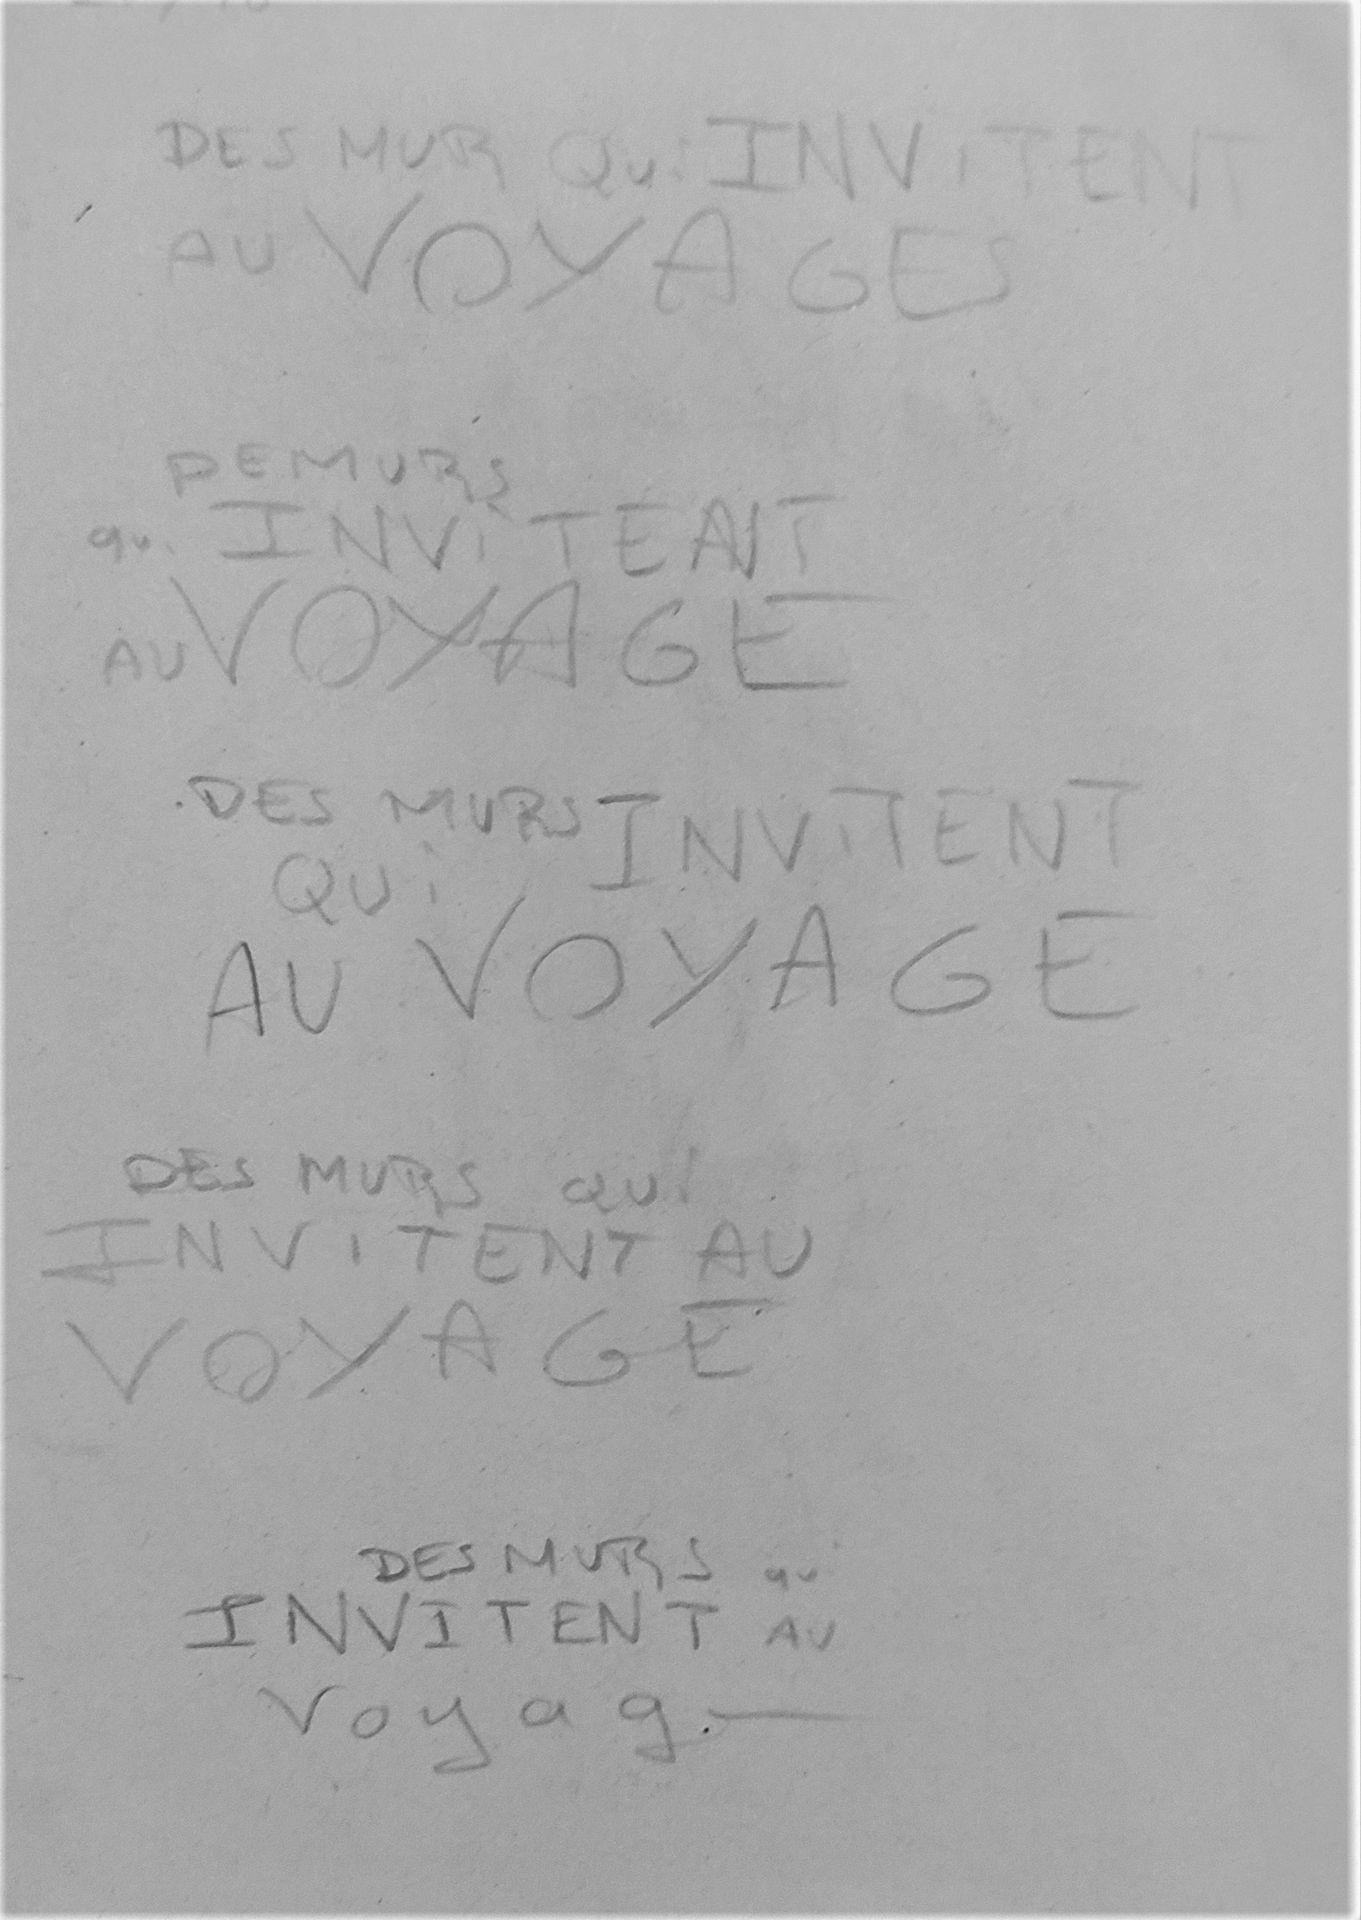 DES MUR Qui INVITENT
AU VOYAGES
DE MURS
qui INVITEANT
AU VOYAGE
DES MURS INVITENT
QUi
AU VOYAGE
DES MURS qui
INViTENT AU
VOYAGE
DES MURS qui
INVITENT AU
Voyag